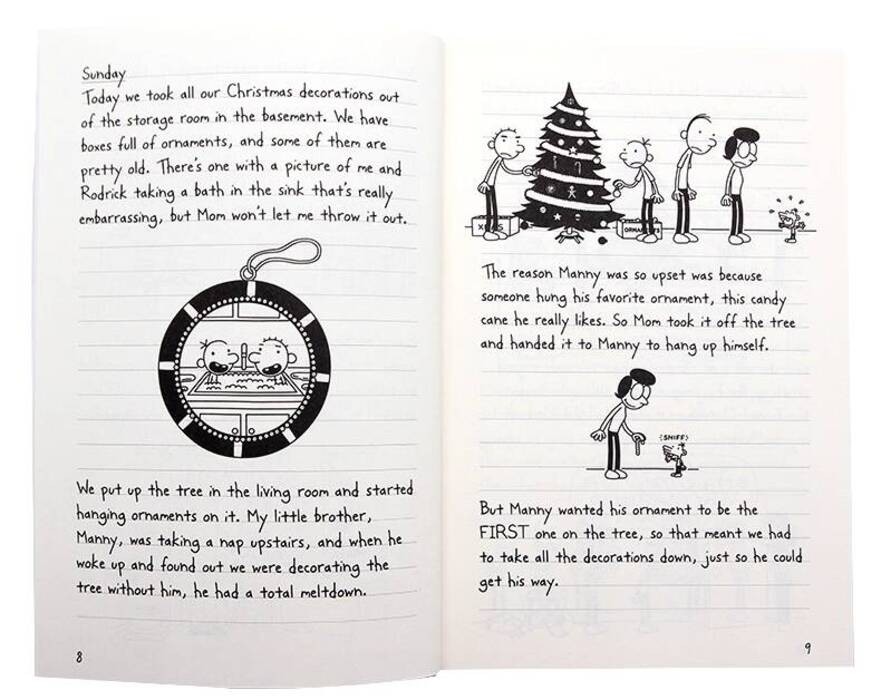 Sunday
Today we took all our Christmas decorations out
of the storage room in the basement. We have
boxes full of ornaments, and some of them are
pretty old. There's one with a picture of me and
Rodrick taking a bath in the sink that's really
embarrassing, but Mom won't let me throw it out.
We put up the tree in the living room and started
hanging ornaments on it. My little brother,
Manny, was taking a nap upstairs, and when he
woke up and found out we were decorating the
tree without him, he had a total meltdown.
8
The reason Manny was so upset was because
someone hung his favorite ornament, this candy
cane he really likes. So Mom took it off the tree
and handed it to Manny to hang up himself.
(SNIFF)
But Manny wanted his ornament to be the
FIRST one on the tree, so that meant we had
to take all the decorations down, just so he could
get his way.
9